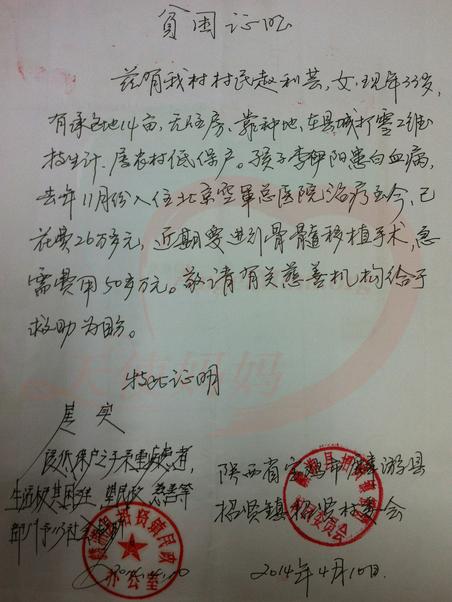 贫困证明
兹有我村村民赵利芸,女,现年33岁,
有承包地14亩,无住房、靠种地、在县城打零工维
持生计.居农村低保户。孩子李伊阳患白血病,
去年11月份入住北京空军总医院治疗至今,已
花费26万多元,近期要进行骨髓移植手术,急
需费用50多万元。敬请有关慈善机构给予
救助为盼。
天使妈妈
特此证明
是实
该低保户之子患重疾
生活极其困难,望民政、慈善等
部门予以
陕西省宝鸡市麟游县
招贤镇招贤村委会
2014年4月10日.